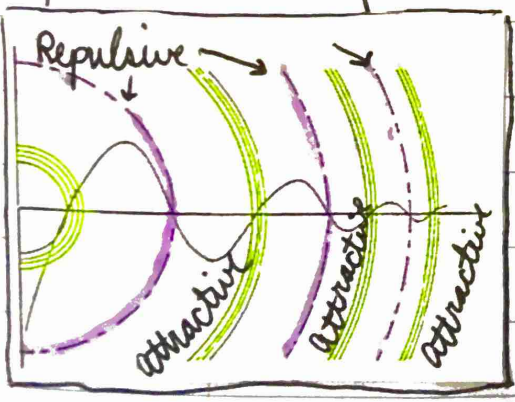 Repulsive
attractive
attractive
attractive